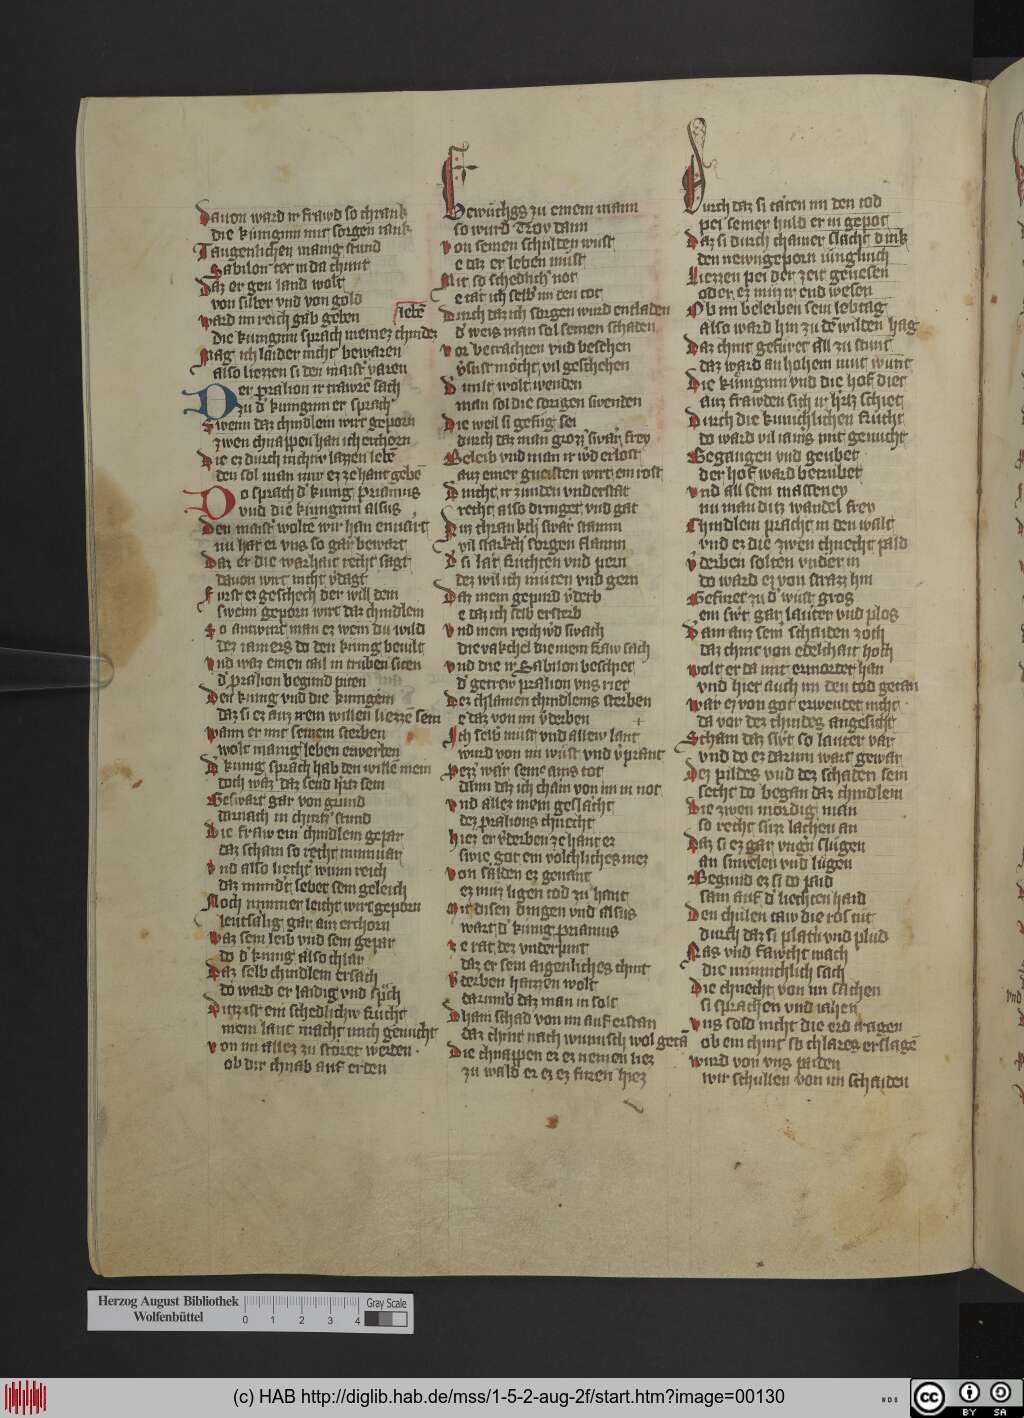 Dauon ward ir frawd so chrank
die kunginn mit sorgen rank
Taugenlichen manig stund
Sabilon tet in da chunt
Daz er gen land wolt
von silber vnd von gold
ward im reich gab geben
die kunginn sprach meinez chindez
leben
Mag ich laider nicht bewaren
also liezzen si den maist' varen
Der pralion ir trawrē sach
zu d' kunginn er sprach
Swenn daz chindlein wirt geporn
zwen chnappen han ich erchorn
Die ez durch nichtiw lazzen lebē
den sol man nur ez ze hant gebē
Do sprach d' kunig Priamus
vnd die kunginn alsus
Den maist' wolte wir han
nu hat er vns so gar bewart
Daz er die warhait recht sagt
dauon wirt nicht v'dagt
Furst ez geschech der will dein
swenn geporn wirt daz chindlein
So antwurt man ez wem du wild
dez iamers do den kunig beuilt
Vnd waz einen tail in truben siten
d' pralion begund piten
Den kunig vnd die kunigein
daz si ez auz irem willen liezzē sein
Wann er mit seinem sterben
wolt manig leben erwerben
D' kunig sprach hab den willē mein
doch waz daz send h'tz sein
Geswart gar von grund
darnach in churtz' stund
Die fraw ein chindlein gepar
daz scham so recht minnuar
Vnd also liecht wunn reich
daz nind't lebet sein geleich
Noch nymmer leicht wirt geporn
leutsalig gar auz erchorn
Waz sein leib vnd sein gepar
do d' kunig also chlar
Daz selb chindlein ersach
do ward er laidig vnd sp'ch
Ditz ist ein schedlichiw frucht
mein lant macht mich genucht
Von im allez zu storet werden
ob dir chnab auf erden
Gewuchgs zu einem mann
so wurd Troy dann
Von seinen schulden wust
e daz er leben must
Mit so schedlich' not
e tat ich selb im den tot
Durch daz ich sorgen wurd entladen
d' weis man sol seinen schaden
Vor betrachten vnd besehen
v'sust mocht vil geschehen
D' mit wolt wenden
man sol die sorigen swenden
Die weil si gefug sei
durch daz man grozz' swar frey
Beleib vnd man ir w'd erlost
auz einer gneisten wirt ein rost
D' nicht ir zunden vnderstat
recht also dringet vnd gat
Auz chrankch swar stamm
vil starkch sorgen flamm
D' si lat fruchten vnd pern
dez wil ich muten vnd gern
Daz mein gepurd v'derb
e daz ich selb ersterb
Vnd mein reich w'd swach
die vakchel die mein fraw sach
Vnd die ir Sabilon beschiet
d' getrew pralion vns riet
Dez chlainen chindleins sterben
e daz von im v'derben
Ich selb must vnd allew lant
wurd von im wust vnd v'prant
Pezz' war seine ains tot
dann daz ich cham von im in not
Vnd allez mein geslacht
dez pralions chnecht
Hiez er v'derben ze hant ez
swie got ein volchliches mez
Von salden ez genant
ez muz ligen tod zu hant
Mit disen dingen vnd alsus
wart d' kunig priamus
Ze rat dez vnderpint
daz er sein aigenliches chint
V'derben haizzen wolt
darumb daz man in solt
Dhain schad von im auf erstan
daz chint nach wunsch wol getā
Die chnappen er ez nemen liez
zu wald er ez furen hiez
Durch daz si taten im den tod
pei seiner huld er in gepot
Daz si durch chainer slacht dink
den newngeporn iunglinch
Liezzen pei der zeit genesen
oder ez muz ir end wesen
Ob im beleiben sein lebtag
also ward hin zu dē wilden hag
Daz chint gefuret all zu stunt
daz ward an hohem mut wunt
Die kunginn vnd die hof diet
auz frawden sich ir h'tz schiet
Durch die kunichlichen frucht
do ward vil iamers mit genucht
Begangen vnd geubet
der hof ward betrubet
Vnd all sein masseney
nu man ditz wandel frey
Chindlein pracht in den walt
vnd ez die zwen chnecht pald
V'derben solten vnder in
do ward ez von strazz hin
Gefuret zu d' wust gros
ein sw't gar lauter vnd plos
Dain auz sein' schaiden zoch
daz chint von edelchait hoch
Wolt er da mit ermordet han
vnd hiet auch im den tod getan
War ez von got erwendet nicht
da vor dez chindes angesicht
Scham daz sw't so lauter var
vnd do ez darinn wart gewar
Dez pildes vnd dez schaden sein
secht do began daz chindlein
Die zwen mordig man
so recht suzz lachen an
Daz si ez gar vngn' slugen
an smielen vnd lugen
Begund ez si do paid
sam auf d' liechten haid
Den chulen taw die ros tut
durch daz si plait vnd plud
Nas vnd fawcht mach
die minnichlich sach
Die chnecht von im sachen
si sprachen vnd iahen
Vns sold nicht die erd tragen
ob ein chint so chlares erslagē
Wurd von vns paiden
wir schullen von im schaiden
Herzog August Bibliothek
Wolfenbüttel
0 1 2 3 4
Gray Scale
(c) HAB http://diglib.hab.de/mss/1-5-2-aug-2f/start.htm?image=00130
cc BY SA